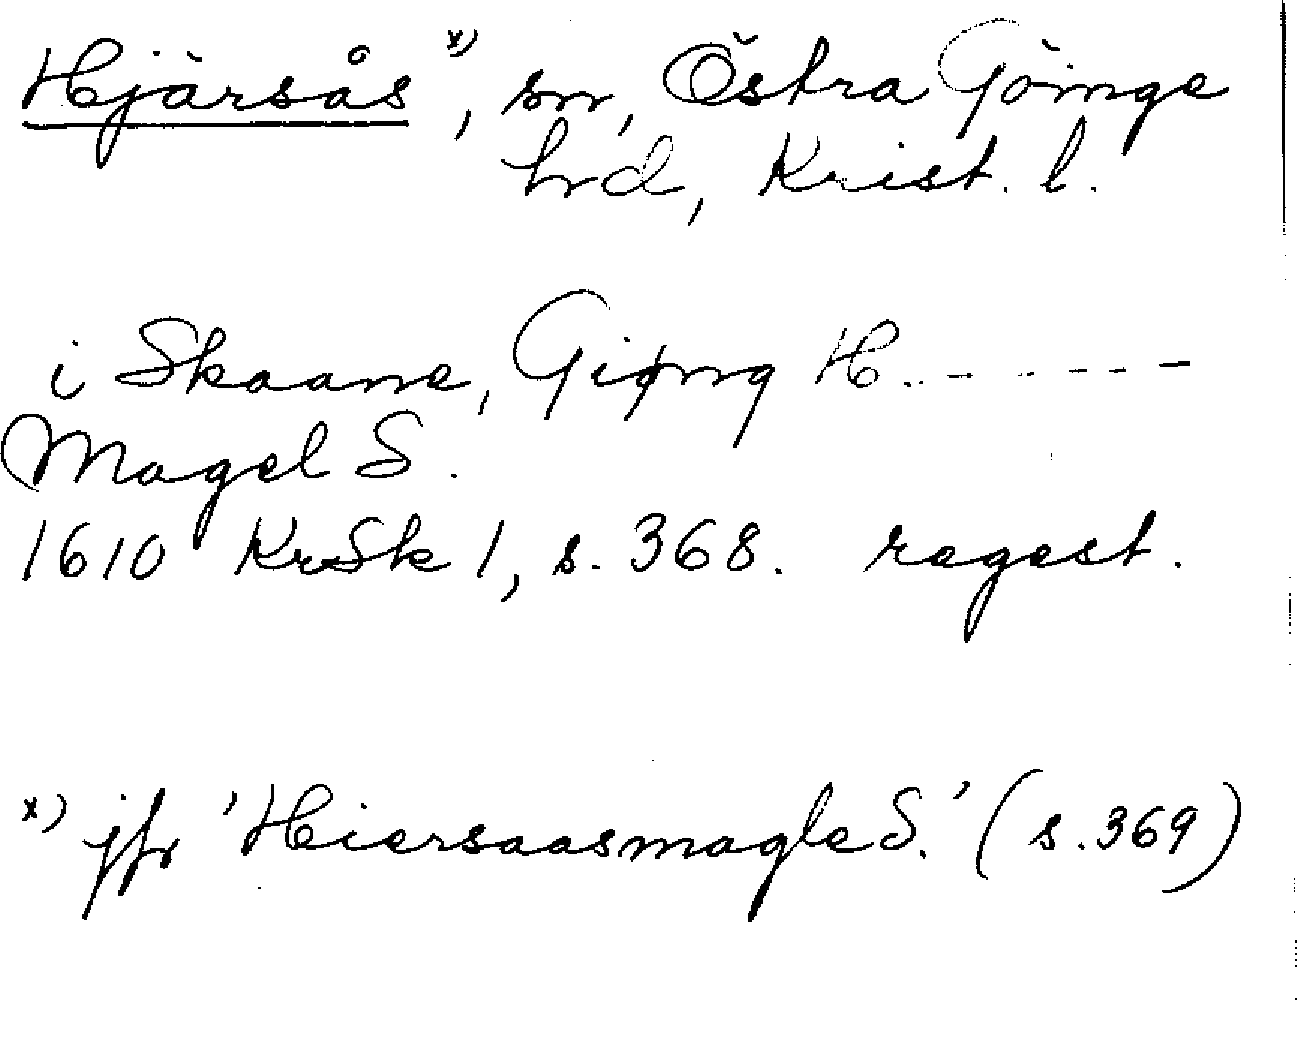 Hjärsås x), sn, Östra Göinge
hrd, Krist. l.
i Skaane, Giøng H. - - - - - -
Magel S.
1610 KrSk 1, s. 368. regest.
x) jfr 'Hiersaasmagle S.' (s. 369)